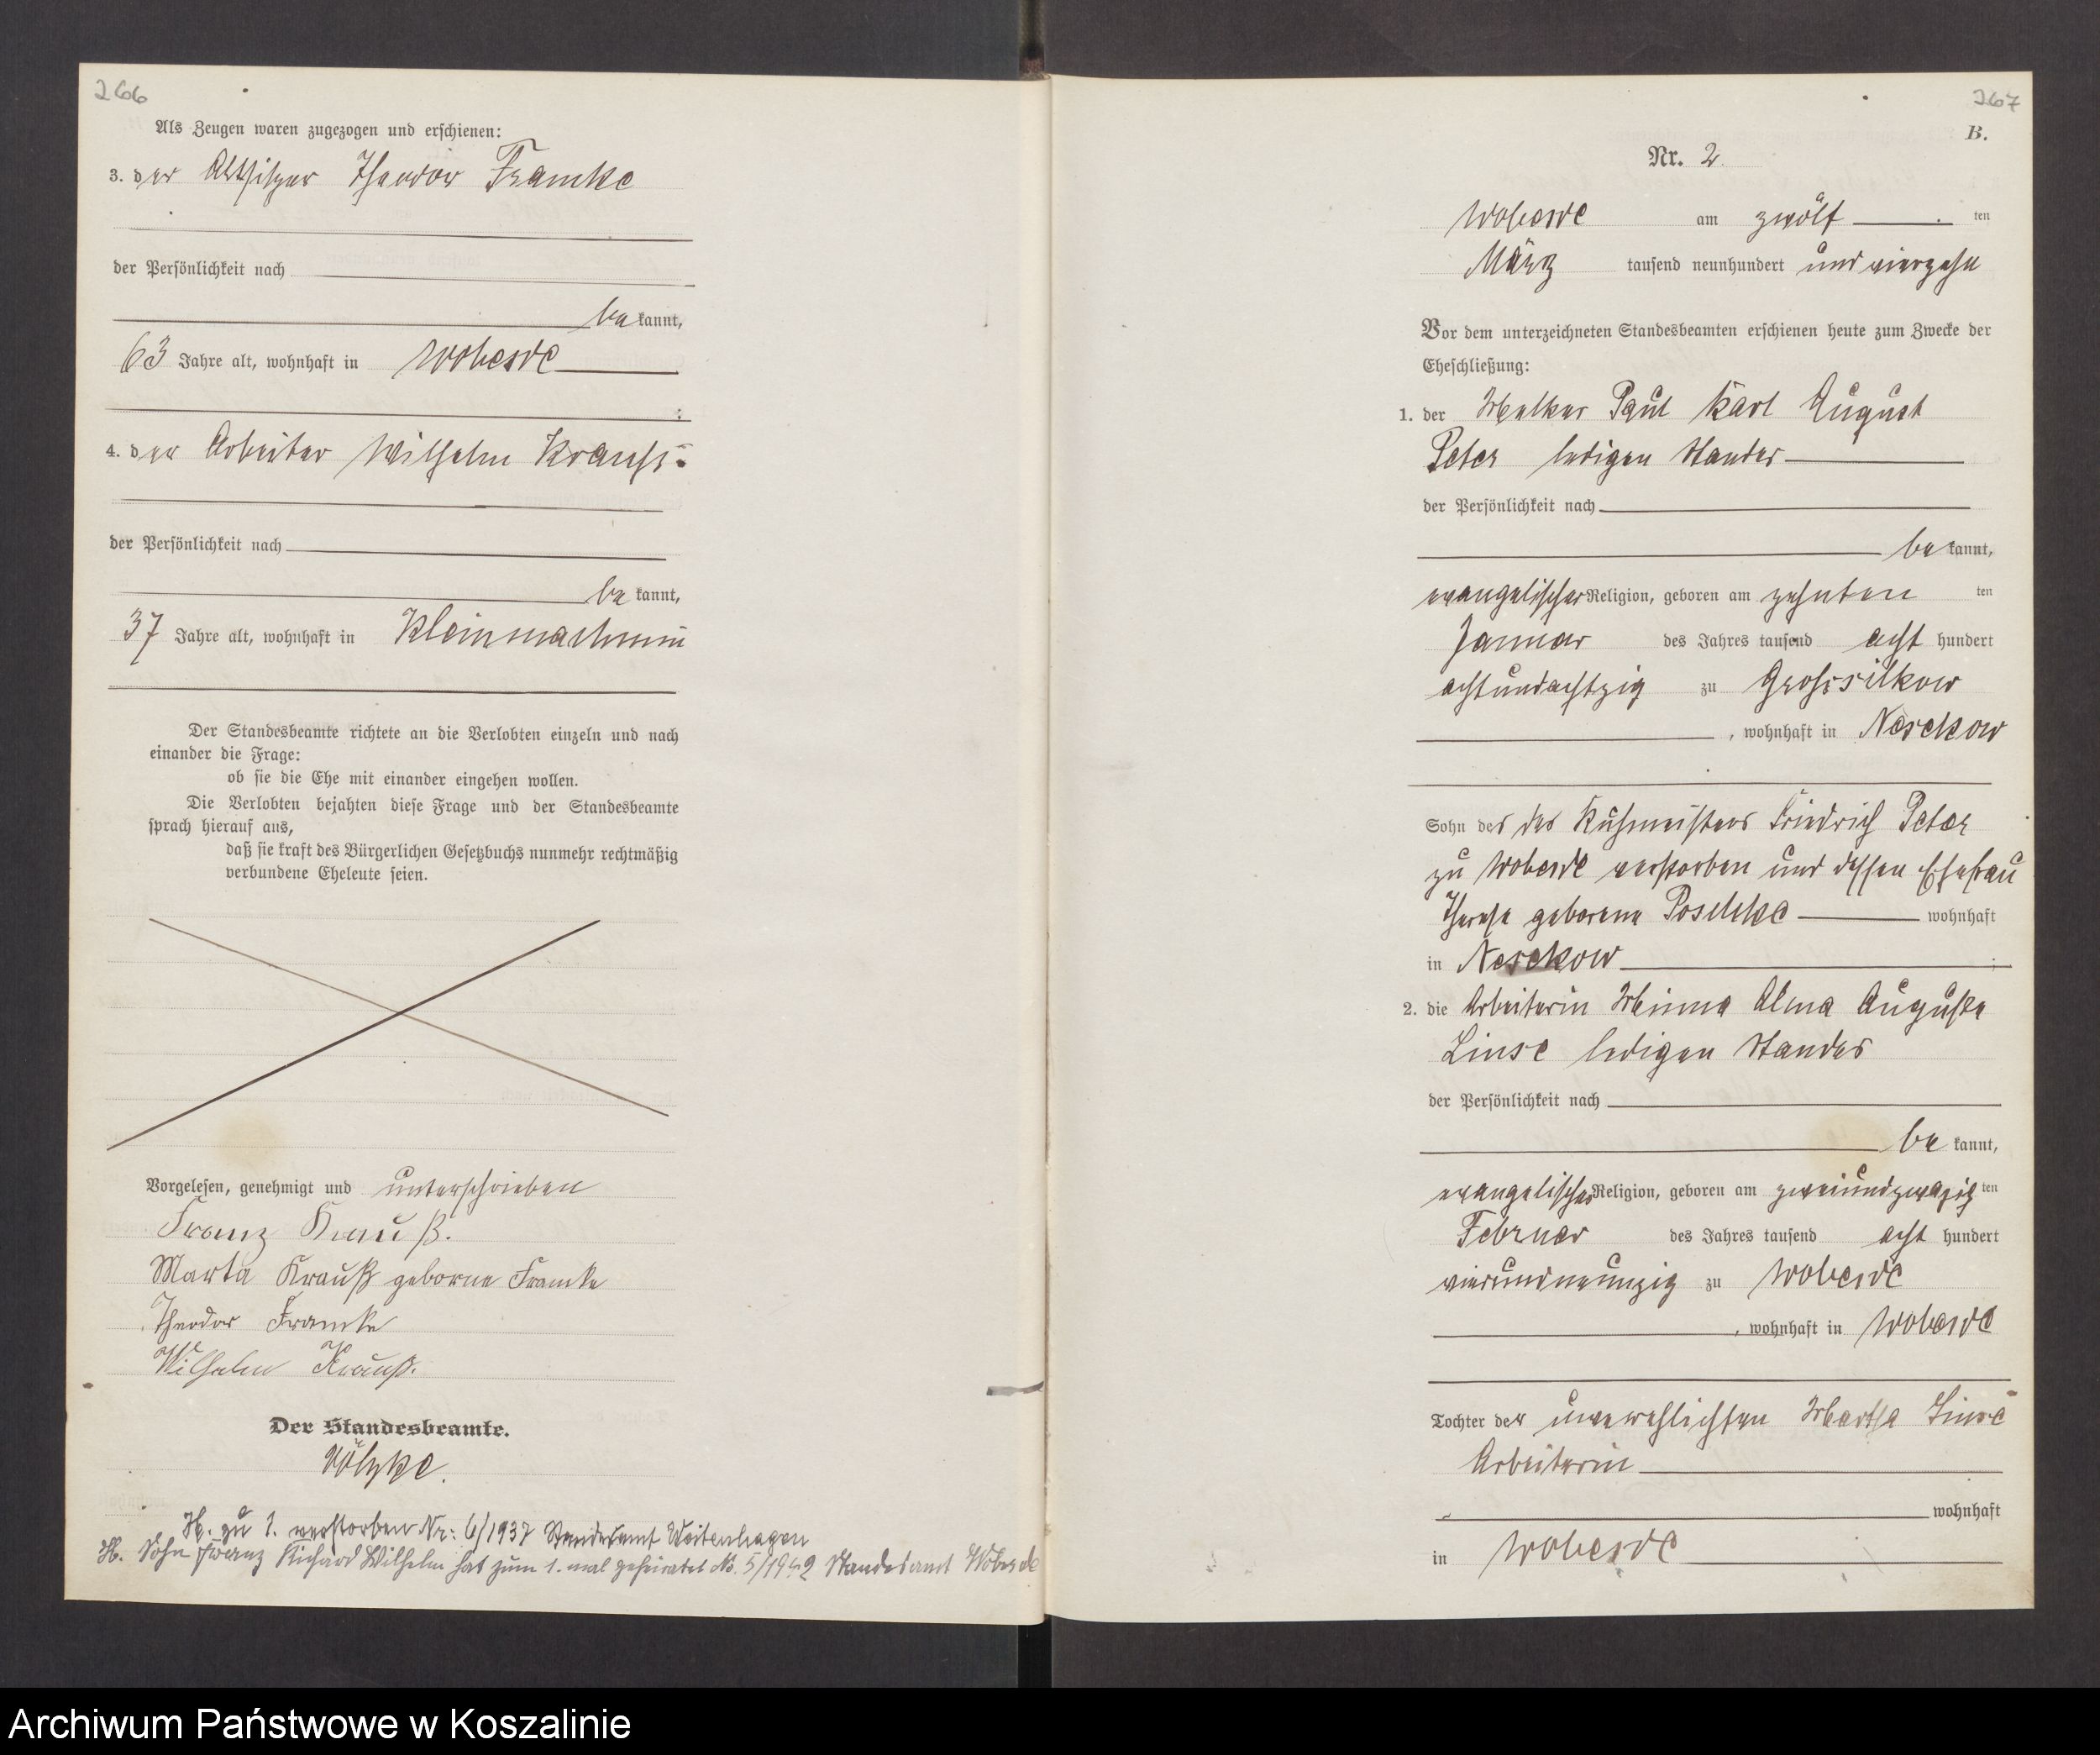 266
Als Zeugen waren zugezogen und erschienen:
3. der Altsitzer Theodor Framke
der Persönlichkeit nach
be kannt,
63 Jahre alt, wohnhaft in Wobesde
;
4. der Arbeiter Wilhelm Krauß
der Persönlichkeit nach
be kannt,
37 Jahre alt, wohnhaft in Kleinmachmin
Der Standesbeamte richtete an die Verlobten einzeln und nach
einander die Frage:
ob sie die Ehe mit einander eingehen wollen.
Die Verlobten bejahten diese Frage und der Standesbeamte
sprach hierauf aus,
daß sie kraft des Bürgerlichen Gesetzbuchs nunmehr rechtmäßig
verbundene Eheleute seien.
Vorgelesen, genehmigt und unterschrieben
Franz Krauß.
Marta Krauß geborne Framke
Theodor Framke
Wilhelm Krauß.
Der Standesbeamte.
Völzke.
H. zu 1. verstorben Nr: 6/1937 Standesamt Weitenhagen
H. Sohn Franz Richard Wilhelm hat zum 1. mal geheiratet No. 5/1942 Standesamt Wobesde
267
B.
Nr. 2.
Wobesde am zwölf ten
März tausend neunhundert und vierzehn
Vor dem unterzeichneten Standesbeamten erschienen heute zum Zwecke der
Eheschließung:
1. der Melker Paul Karl August
Peter ledigen Standes
der Persönlichkeit nach
be kannt,
evangelischer Religion, geboren am zehnten ten
Januar des Jahres tausend acht hundert
achtundachtzig zu Grosssilkow
, wohnhaft in Neschkow
Sohn des des Kuhmeisters Friedrich Peter
zu Wobesde verstorben und dessen Ehefrau
Therese geborene Poschke wohnhaft
in Neschkow
2. die Arbeiterin Minna Alma Auguste
Linse ledigen Standes
der Persönlichkeit nach
be kannt,
evangelischer Religion, geboren am zweiundzwazig ten
Februar des Jahres tausend acht hundert
vierundneunzig zu Wobesde
, wohnhaft in Wobesde
Tochter der unverehlichten Martha Linse
Arbeiterin
wohnhaft
in Wobesde
Archiwum Państwowe w Koszalinie